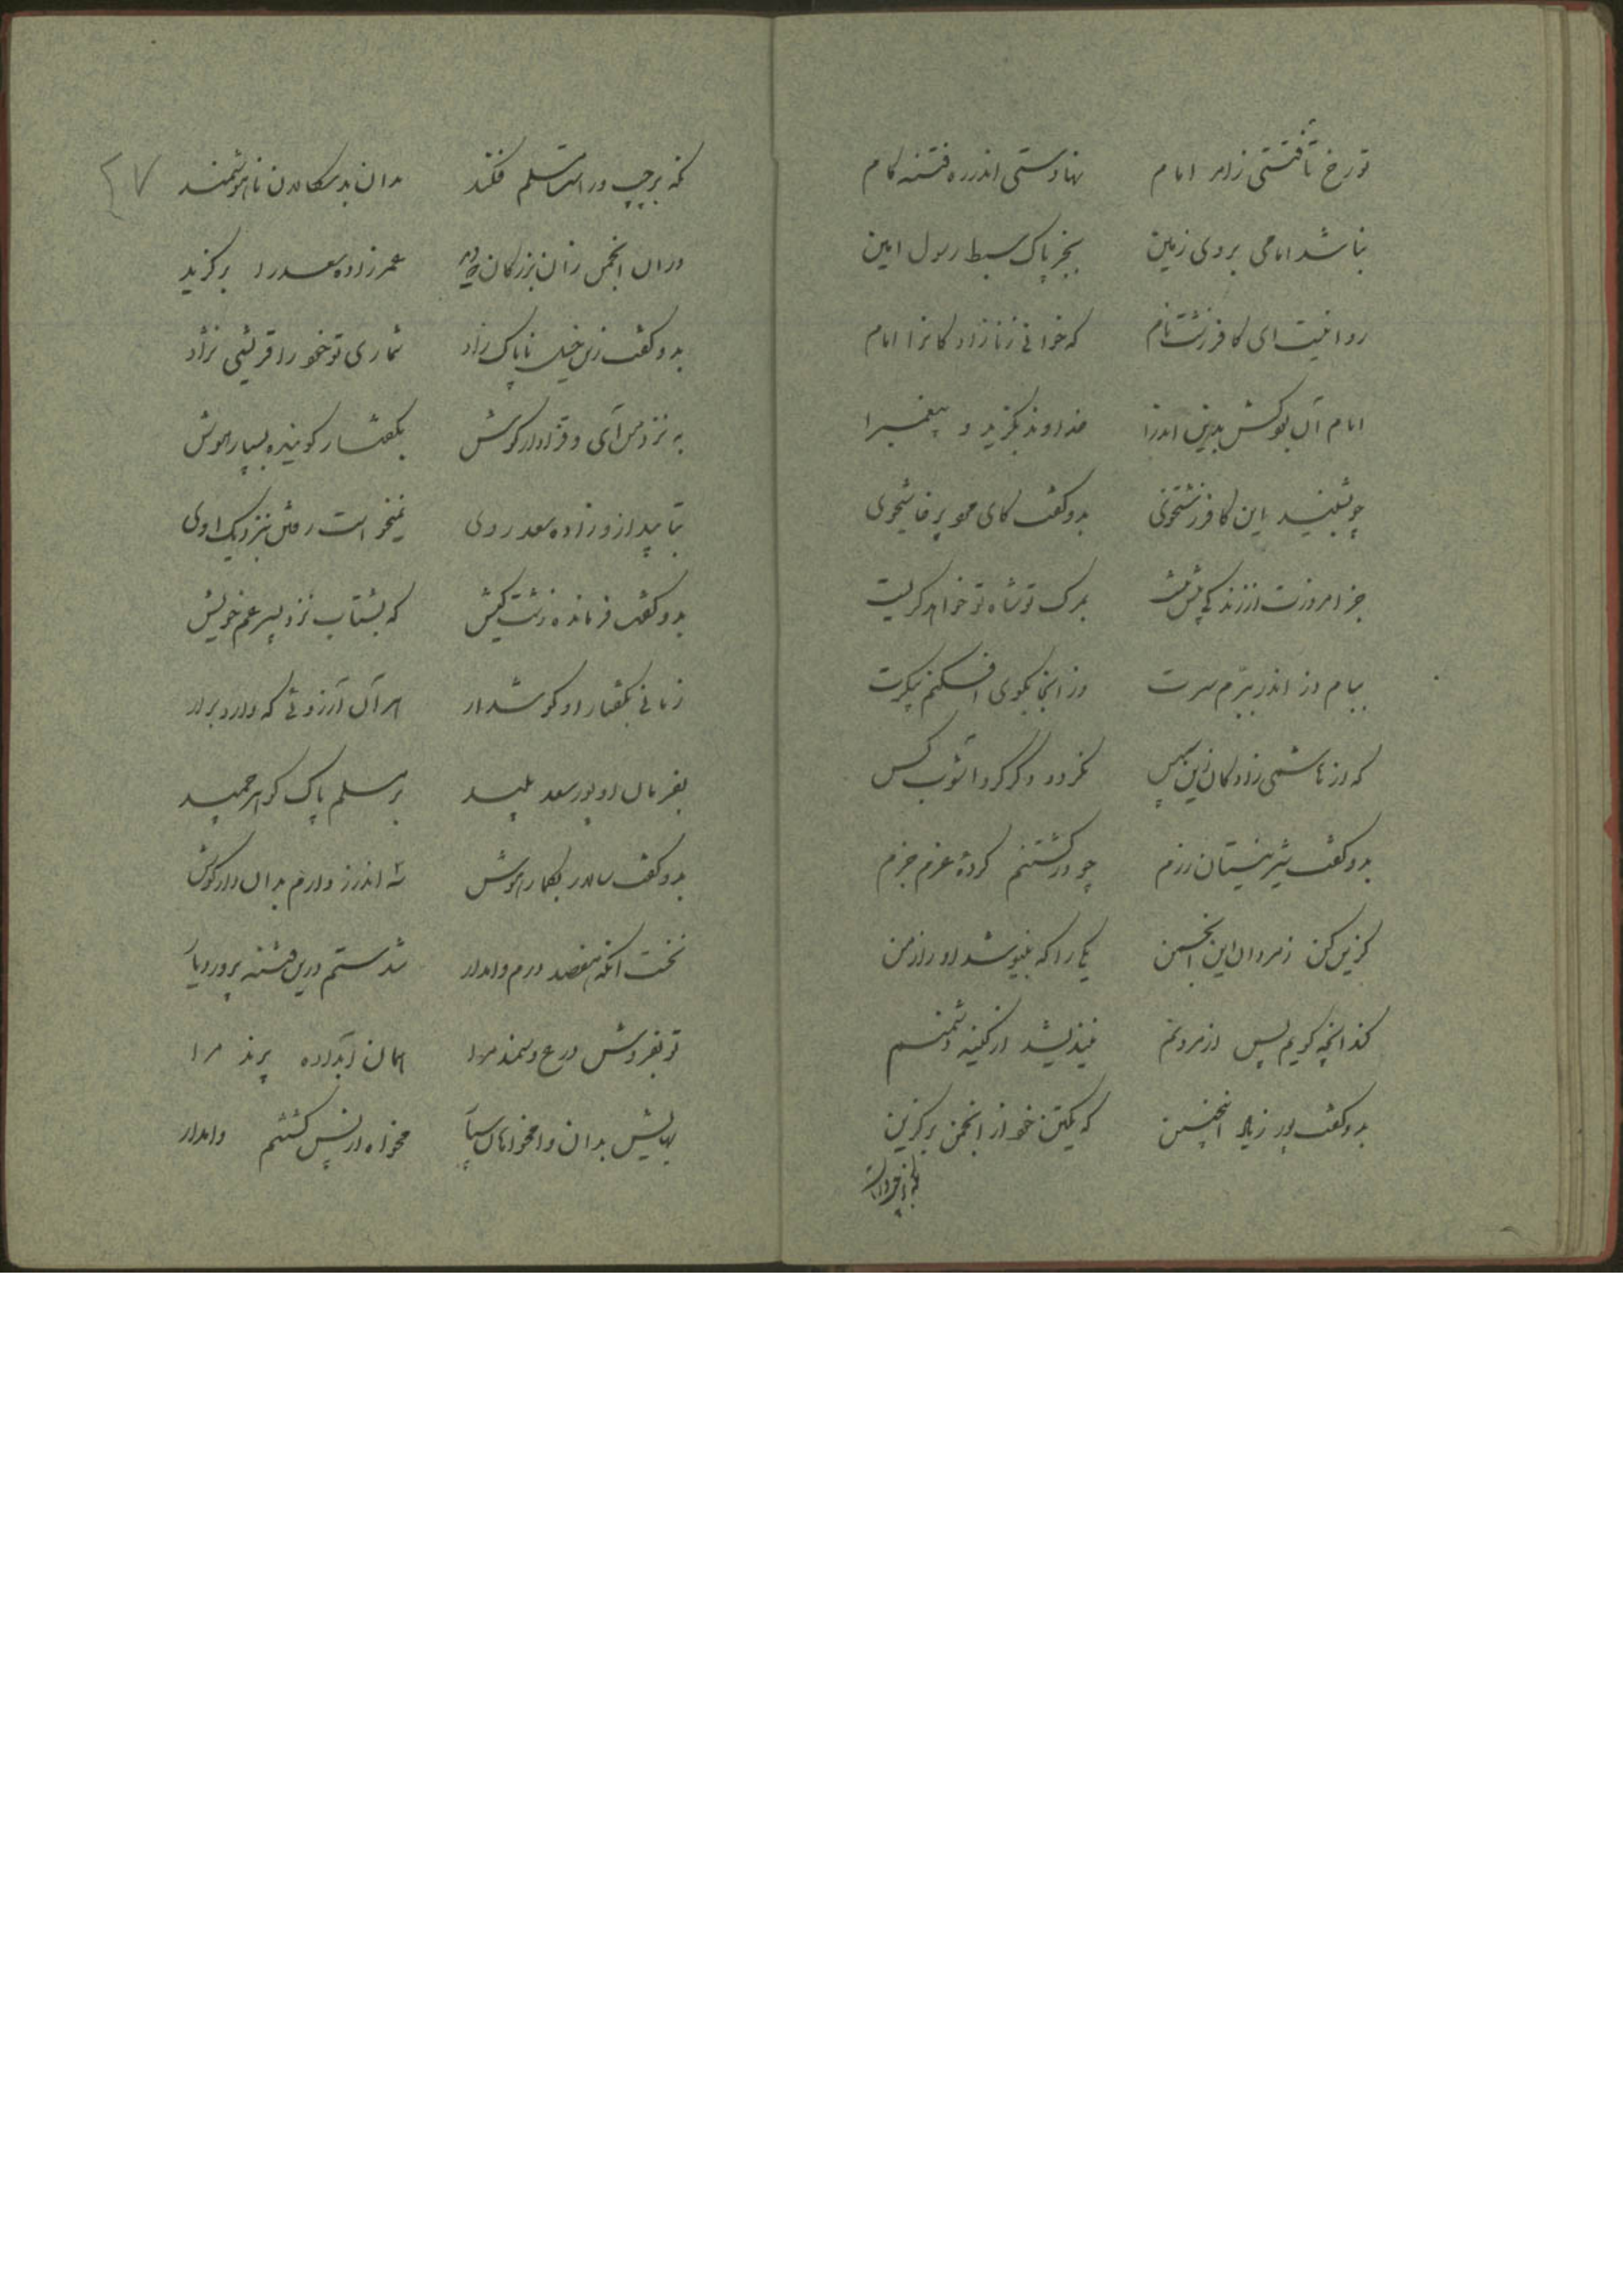 تو رخ تافتستی ز امر امام نهادستی اندر ره فتنه کام
نباشد امامی بروی زمین بجز پاک سبط رسول امین
روا نیست ای کافر زشت نام که خوانی زنازادگانرا امام
امام آن بود کش بدین اندرا خداوند بگزید و پیغمبرا
چو بشنید این کافر زشتخوی بدو گفت کای محو پرخاشجوی
جز امروزت از زندگی نیست بمرگ تو شاه تو خواهد گریست
ببام دز اندر ببرم سرت وز آنجا بکوی افکنم پیکرت
که از هاشمی زادگان زین سپس نگردد دگر گرد آشوب کس
بدو گفت شیر نیستان رزم چو در کشتنم کردهٔ عزم جزم
گزین کن ز مردان این انجمن یکی را که بنیوشد او راز من
کند آنچه گویم پس از مردنم نیندیشد از کینه دشمنم
بدو گفت پور زیاد اینچنین که یکتن خود از انجمن برگزین
نگه بر چپ و راست مسلم فکند بدان بدسگالان ناهوشمند
در آن انجمن زان بزرگان عمر زاده سعد را برگزید
بدو گفت زین خیل ناپاک زاد شماری تو خود را قریشی نژاد
به نزد من آی و فرادار گوش بگفتار گوینده بسپار هوش
بتابید ازو زاده سعد روی نمیخواست رفتن بنزدیک اوی
بدو گفت فرمانده زشت کیش که بشتاب نزد پسر عم خویش
زمانی بگفتار او گوشدار هر آن آرزوئی که دارد برآر
بفرمان او پور سعد پلید بر مسلم پاک گوهر چمید
بدو گفت سالار هوش سه اندرز دارم بدان دار گوش
نخست آنکه هفصد درم وامدار شدستم درین فتنه پرور دیار
تو بفروش درع و سمند مرا همان آبداده پرند مرا
بهایش بدان وامخواهان سپار مخواه از پس کشتنم وامدار